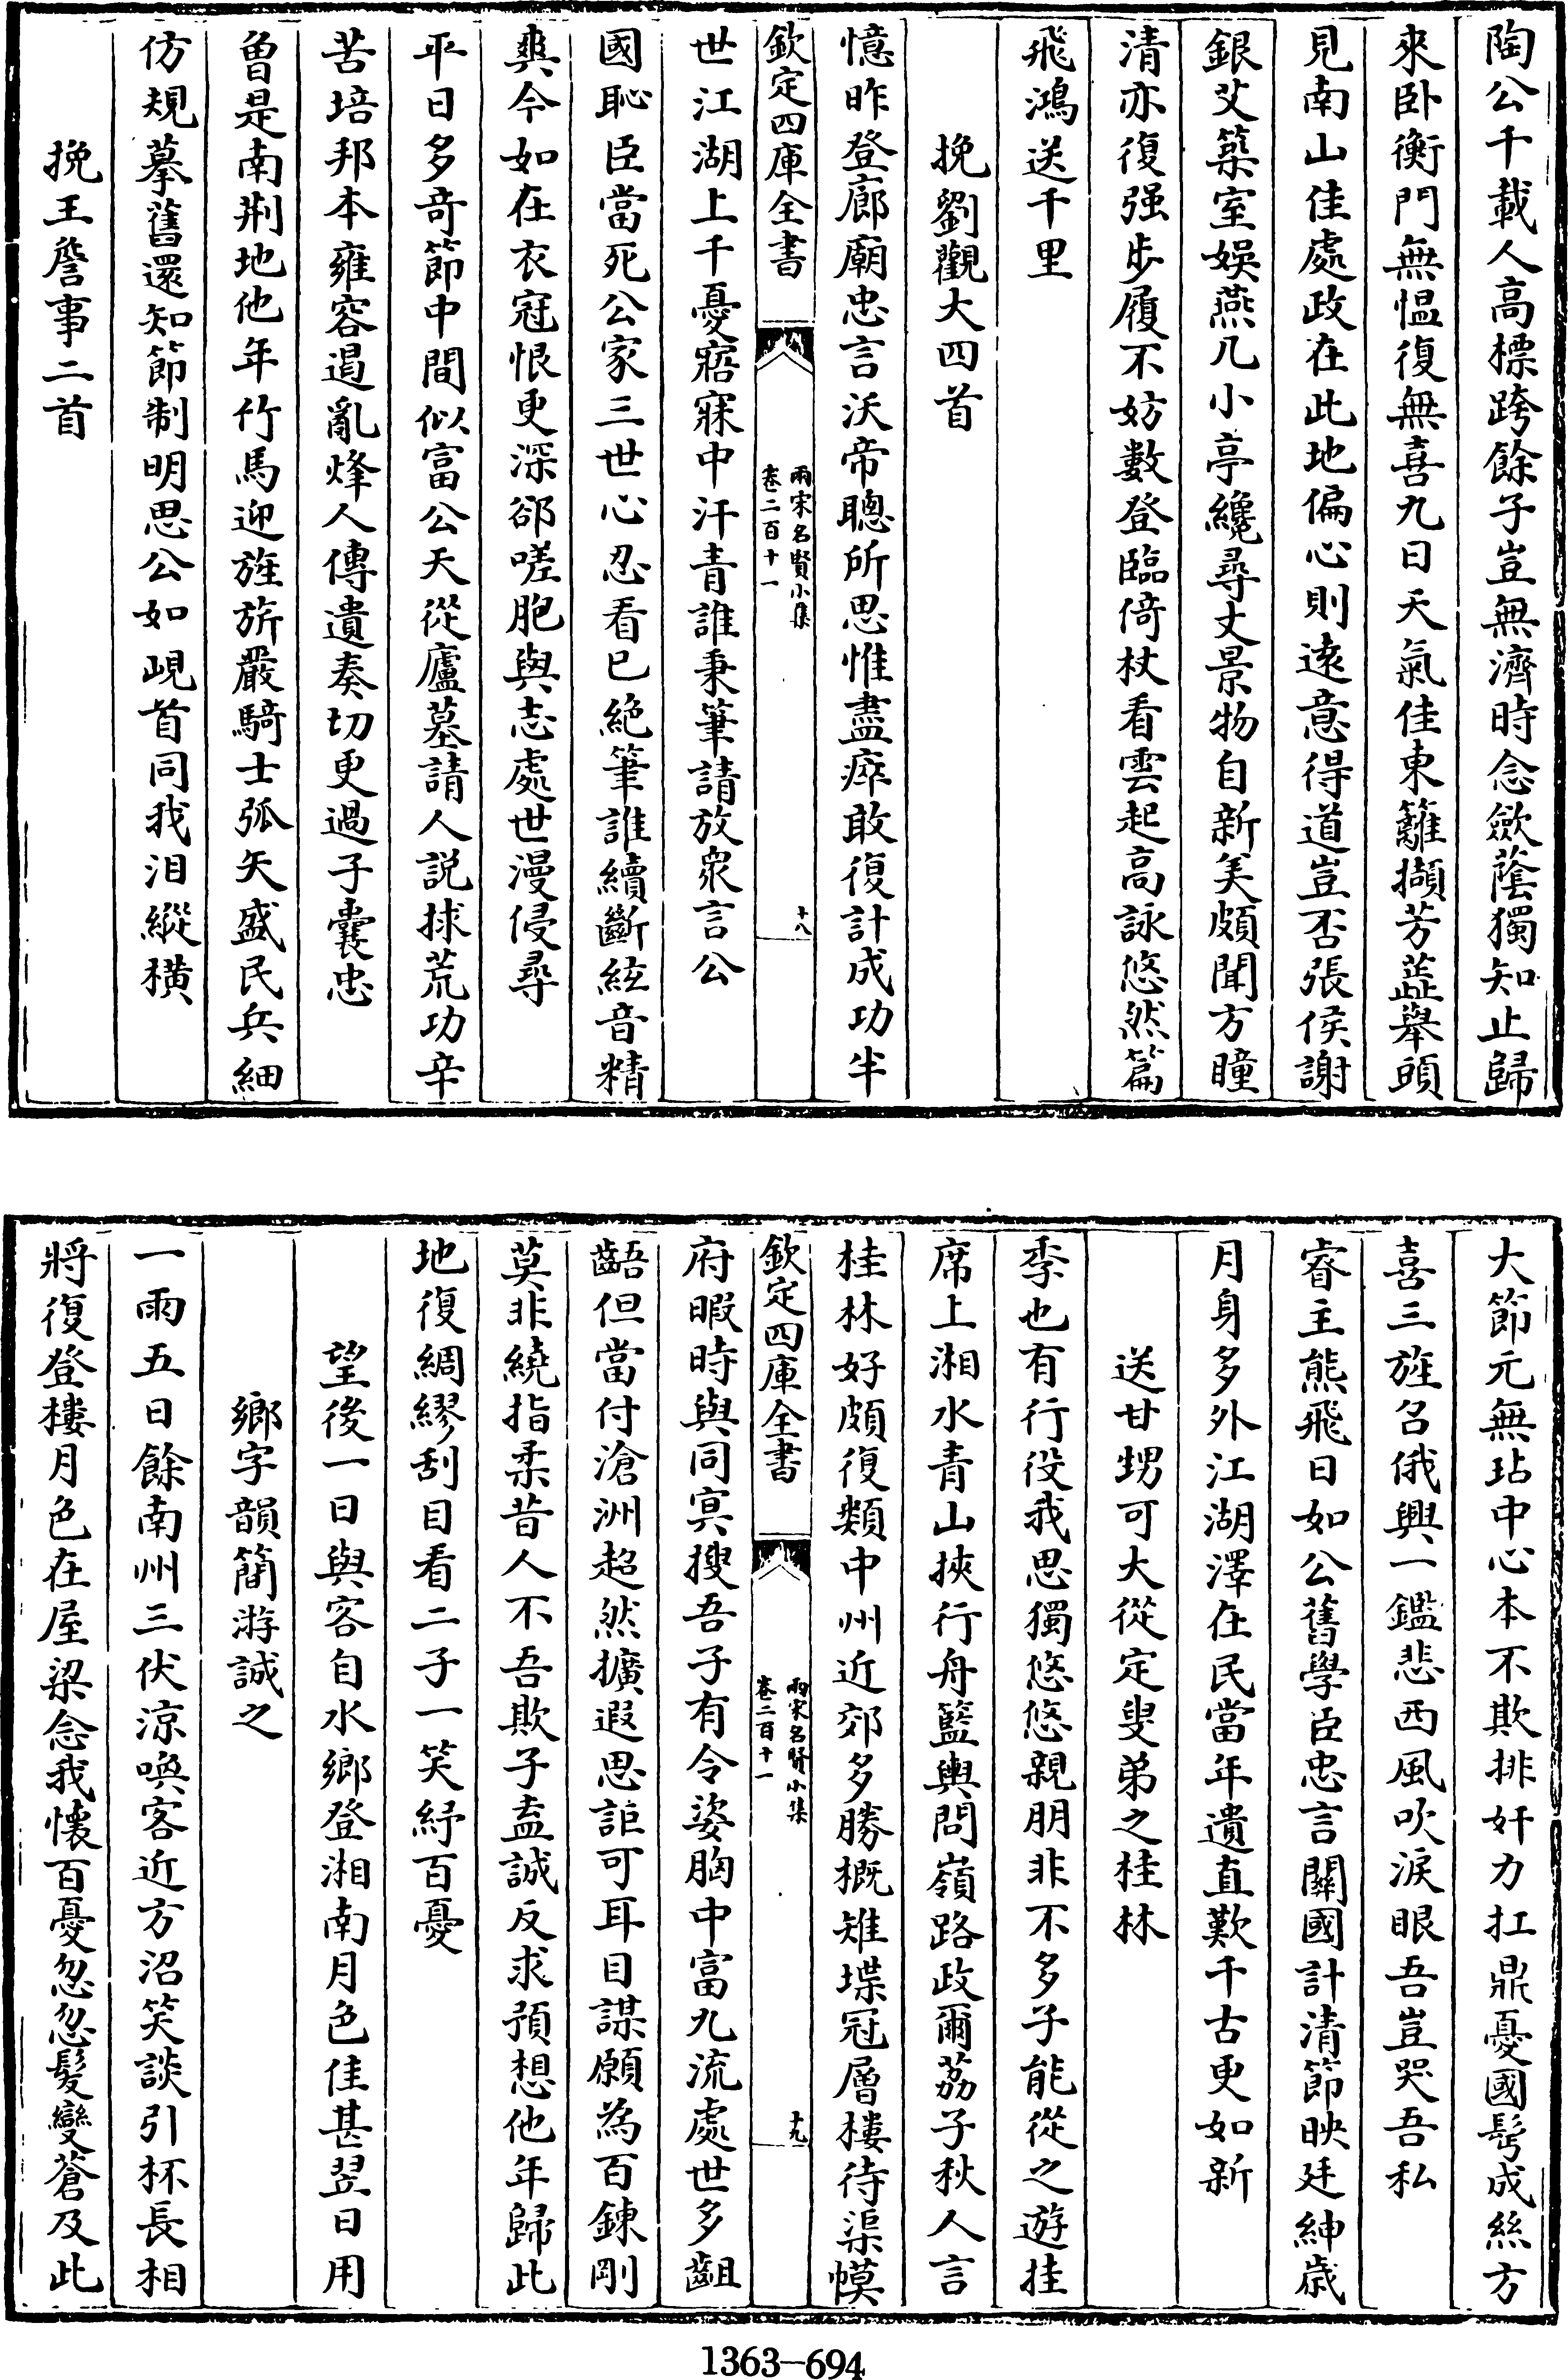 陶公千載人高標跨餘子豈無濟時念歛蔭獨知止歸
來卧衡門無愠復無喜九日天氣佳東籬擷芳蘂舉頭
見南山佳處政在此地偏心則遠意得道豈否張侯謝
銀艾築室娛燕几小亭纔尋丈景物自新美頗聞方瞳
清亦復强步履不妨數登臨倚杖看雲起高詠悠然篇
飛鴻送千里
挽劉觀大四首
憶昨登廊廟忠言沃帝聰所思惟盡瘁敢復計成功半
欽定四庫全書
兩宋名賢小集
卷二百十一
十八
世江湖上千憂寤寐中汗青誰秉筆請放衆言公
國恥臣當死公家三世心忍看已絶筆誰續斷絃音精
爽今如在衣冠恨更深郤嗟胞與志處世漫侵尋
平日多竒節中間似富公天從廬墓請人説捄荒功辛
苦培邦本雍容遏亂烽人傳遺奏切更過子囊忠
曾是南荆地他年竹馬迎旌旂嚴騎士弧矢盛民兵細
仿規摹舊還知節制明思公如峴首同我泪縱横
挽王詹事二首
大節元無玷中心本不欺排奸力扛鼎憂國髩成絲方
喜三旌召俄興一鑑悲西風吹淚眼吾豈哭吾私
睿主熊飛日如公舊學臣忠言關國計清節映廷紳歲
月身多外江湖澤在民當年遺直歎千古更如新
送甘甥可大從定叟弟之桂林
季也有行役我思獨悠悠親朋非不多子能從之遊挂
席上湘水青山挾行舟籃輿問嶺路政爾荔子秋人言
桂林好頗復類中州近郊多勝概雉堞冠層樓待渠幙
欽定四庫全書
兩宋名賢小集
卷二百十一
十九
府暇時與同冥搜吾子有令姿胸中富九流處世多齟
齬但當付滄洲超然擴遐思詎可耳目謀願為百鍊剛
莫非繞指柔昔人不吾欺子盍誠反求預想他年歸此
地復綢繆刮目看二子一笑紓百憂
望後一日與客自水鄉登湘南月色佳甚翌日用
鄉字韻簡游誠之
一雨五日餘南州三伏凉喚客近方沼笑談引杯長相
將復登樓月色在屋梁念我懷百憂忽忽髮變蒼及此
1363-694